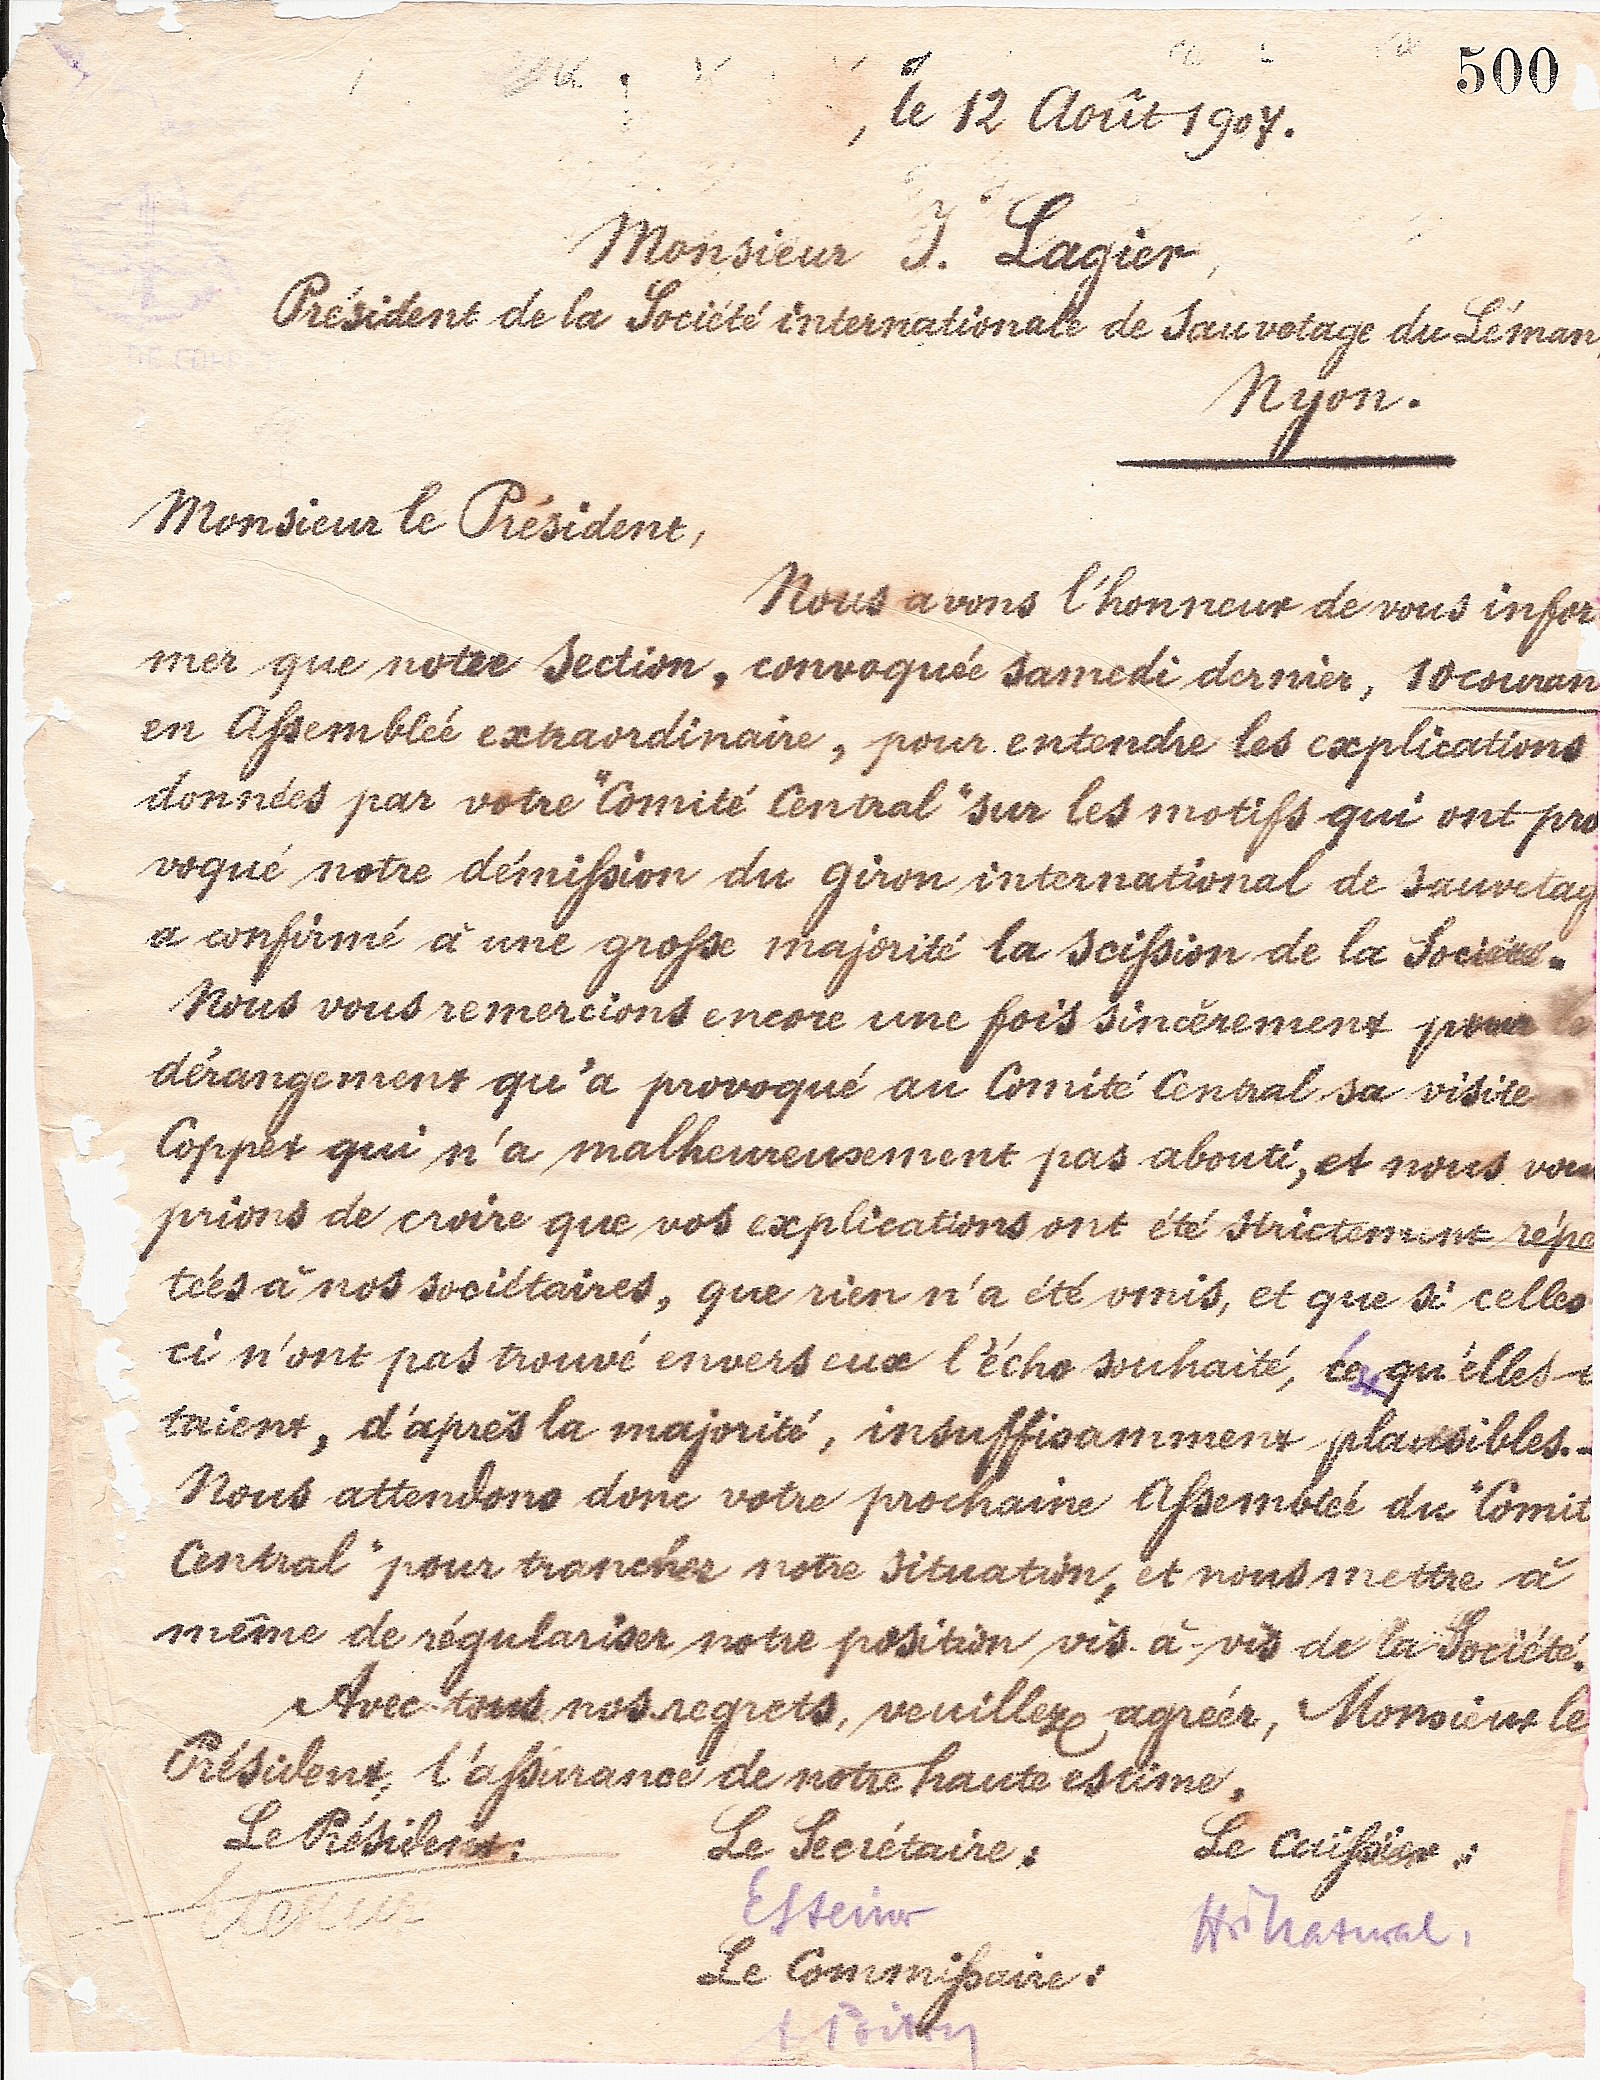 500
, le 12 Août 1907.
Monsieur J. Lagier,
Président de la Société internationale de Sauvetage du Léman,
Nyon.
Monsieur le Président,
Nous avons l'honneur de vous infor
mer que notre Section, convoquée samedi dernier, 10 couran
en Assemblée extraordinaire, pour entendre les explications
données par votre "Comité Central" sur les motifs qui ont pro
voqué notre démission du giron international de sauvetag
a confirmé à une grosse majorité la scission de la Société.
Nous vous remercions encore une fois sincèrement pour le
dérangement qu'a provoqué au Comité Central sa visite
Coppet qui n'a malheureusement pas abouti, et nous vou
prions de croire que vos explications ont été strictement répé
tées à nos sociétaires, que rien n'a été omis, et que si celles
ci n'ont pas trouvé envers eux l'écho souhaité, qu'elles é
taient, d'après la majorité, insuffisamment plausibles.-
Nous attendons donc votre prochaine Assemblée du "Comit
Central" pour trancher notre situation, et nous mettre à
même de régulariser notre position vis-à-vis de la Société.
Avec tous nos regrets, veuillez agréer, Monsieur le
Président, l'assurance de notre haute estime.
Le Président: Le Secrétaire: Le Caissier:
Hri Natural.
Le Commissaire: